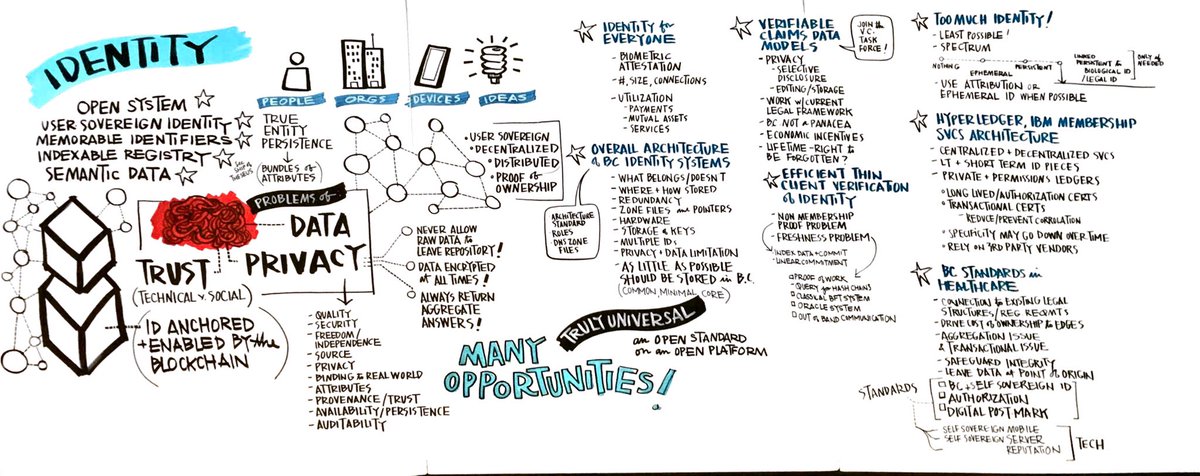 IDENTITY
OPEN SYSTEM
USER SOVEREIGN IDENTITY
MEMORABLE IDENTIFIERS
INDEXABLE REGISTRY
SEMANTIC DATA
PEOPLE
ORGS
DEVICES
IDEAS
TRUE
ENTITY
PERSISTENCE
BUNDLES of
ATTRIBUTES
• USER SOVEREIGN
• DECENTRALIZED
• DISTRIBUTED
• PROOF of
OWNERSHIP
PROBLEMS of
DATA
PRIVACY
TRUST
(TECHNICAL v. SOCIAL)
ID ANCHORED
+ ENABLED BY the
BLOCKCHAIN
NEVER ALLOW
RAW DATA to
LEAVE REPOSITORY!
DATA ENCRYPTED
at ALL TIMES!
ALWAYS RETURN
AGGREGATE
ANSWERS!
- QUALITY
- SECURITY
- FREEDOM/
INDEPENDENCE
- SOURCE
- PRIVACY
- BINDING to REAL WORLD
- ATTRIBUTES
- PROVENANCE/TRUST
- AVAILABILITY/PERSISTENCE
- AUDITABILITY
MANY
OPPORTUNITIES!
TRULY UNIVERSAL
an OPEN STANDARD
on an OPEN PLATFORM
IDENTITY for
EVERYONE
- BIOMETRIC
ATTESTATION
- #, SIZE, CONNECTIONS
- UTILIZATION
- PAYMENTS
- MUTUAL ASSETS
- SERVICES
OVERALL ARCHITECTURE
of BC IDENTITY SYSTEMS
- WHAT BELONGS/DOESN'T
- WHERE + HOW STORED
- REDUNDANCY
- ZONE FILES and POINTERS
- HARDWARE
- STORAGE & KEYS
- MULTIPLE IDs
- PRIVACY + DATA LIMITATION
- AS LITTLE AS POSSIBLE
SHOULD BE STORED in B.C.
(COMMON MINIMAL CORE)
ARCHITECTURE
STANDARD
ROLES
DNS ZONE
FILES
VERIFIABLE
CLAIMS DATA
MODELS
JOIN the
V.C. TASK
FORCE!
- PRIVACY
- SELECTIVE
DISCLOSURE
- EDITING/STORAGE
- WORK w/ CURRENT
LEGAL FRAMEWORK
- BC NOT a PANACEA
- ECONOMIC INCENTIVES
- LIFETIME - RIGHT to
BE FORGOTTEN?
EFFICIENT THIN
CLIENT VERIFICATION
of IDENTITY
- NON MEMBERSHIP
PROOF PROBLEM
- FRESHNESS PROBLEM
- INDEX DATA + COMMIT
- LINEAR COMMITMENT
PROOF of WORK
QUERY for HASH CHAINS
CLASSICAL BFT SYSTEM
ORACLE SYSTEM
OUT of BAND COMMUNICATION
TOO MUCH IDENTITY!
- LEAST POSSIBLE!
- SPECTRUM
NOTHING
EPHEMERAL
PERSISTENT
LINKED
PERSISTENT to
BIOLOGICAL ID
/LEGAL ID
ONLY if
NEEDED
- USE ATTRIBUTION or
EPHEMERAL ID WHEN POSSIBLE
HYPERLEDGER, IBM MEMBERSHIP
SVCS ARCHITECTURE
- CENTRALIZED + DECENTRALIZED SVCS
- LT + SHORT TERM ID PIECES
- PRIVATE + PERMISSION'D LEDGERS
LONG LIVED/AUTHORIZATION CERTS
TRANSACTIONAL CERTS
REDUCE/PREVENT CORROLATION
SPECIFICITY MAY GO DOWN OVER TIME
RELY ON 3RD PARTY VENDORS
BC STANDARDS in
HEALTHCARE
- CONNECTION to EXISTING LEGAL
STRUCTURES/REG REQMTS
- DRIVE COST of OWNERSHIP to EDGES
- AGGREGATION ISSUE
& TRANSACTIONAL ISSUE
- SAFEGUARD INTEGRITY
- LEAVE DATA at POINT of ORIGIN
STANDARDS
BC + SELF SOVEREIGN ID
AUTHORIZATION
DIGITAL POST MARK
SELF SOVEREIGN MOBILE
SELF SOVEREIGN SERVER
REPUTATION
TECH